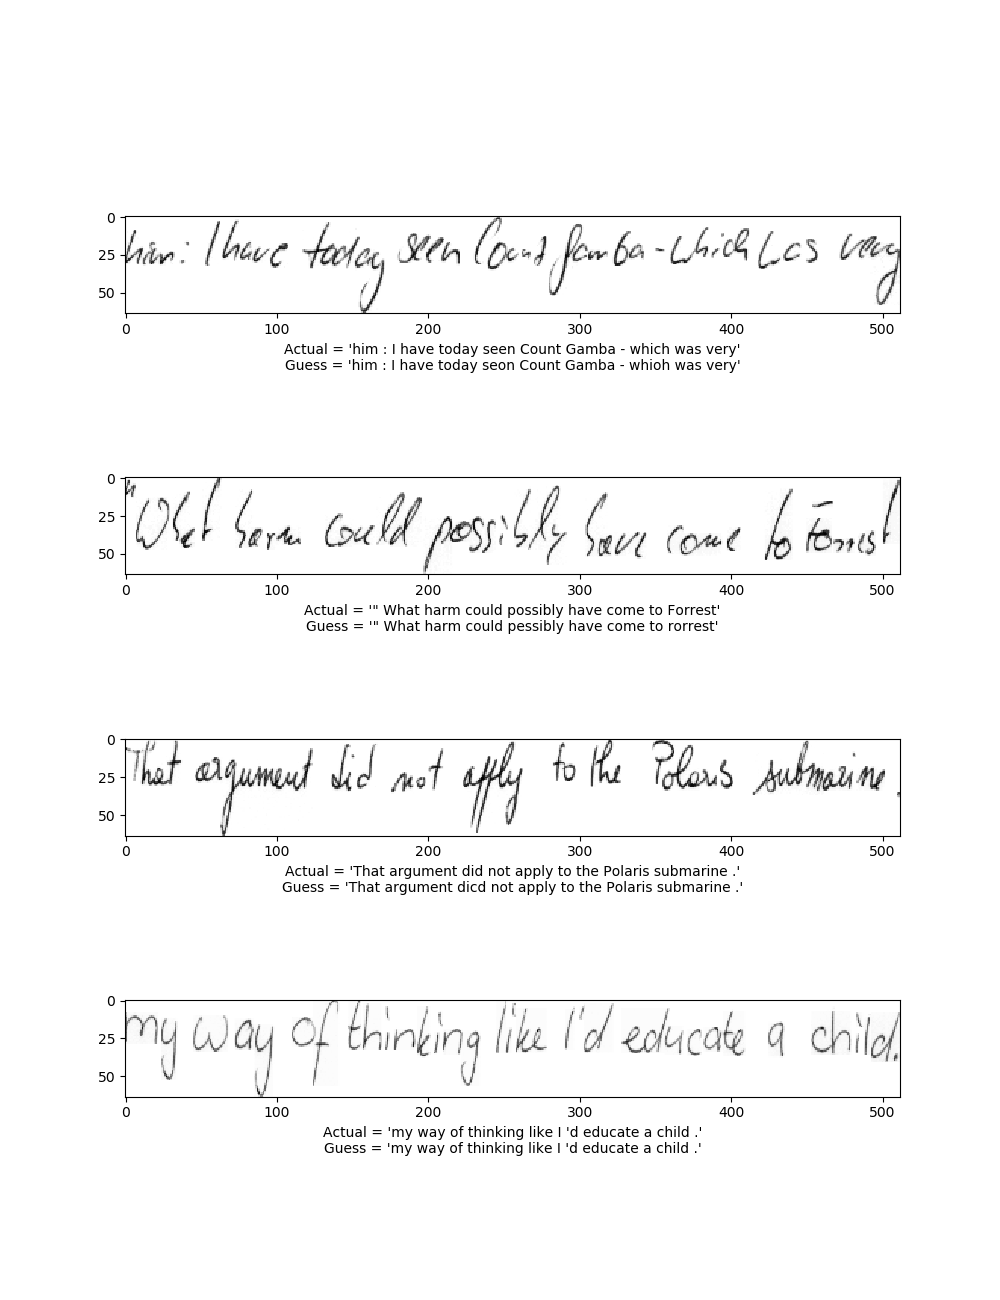 0
25
50
him: I have today seen Count Gamba - which was very
0 100 200 300 400 500
Actual = 'him : I have today seen Count Gamba - which was very'
Guess = 'him : I have today seon Count Gamba - whioh was very'
0
25
50
"What harm could possibly have come to Forrest
0 100 200 300 400 500
Actual = '" What harm could possibly have come to Forrest'
Guess = '" What harm could pessibly have come to rorrest'
0
25
50
That argument did not apply to the Polaris submarine.
0 100 200 300 400 500
Actual = 'That argument did not apply to the Polaris submarine .'
Guess = 'That argument dicd not apply to the Polaris submarine .'
0
25
50
my way of thinking like I'd educate a child.
0 100 200 300 400 500
Actual = 'my way of thinking like I 'd educate a child .'
Guess = 'my way of thinking like I 'd educate a child .'